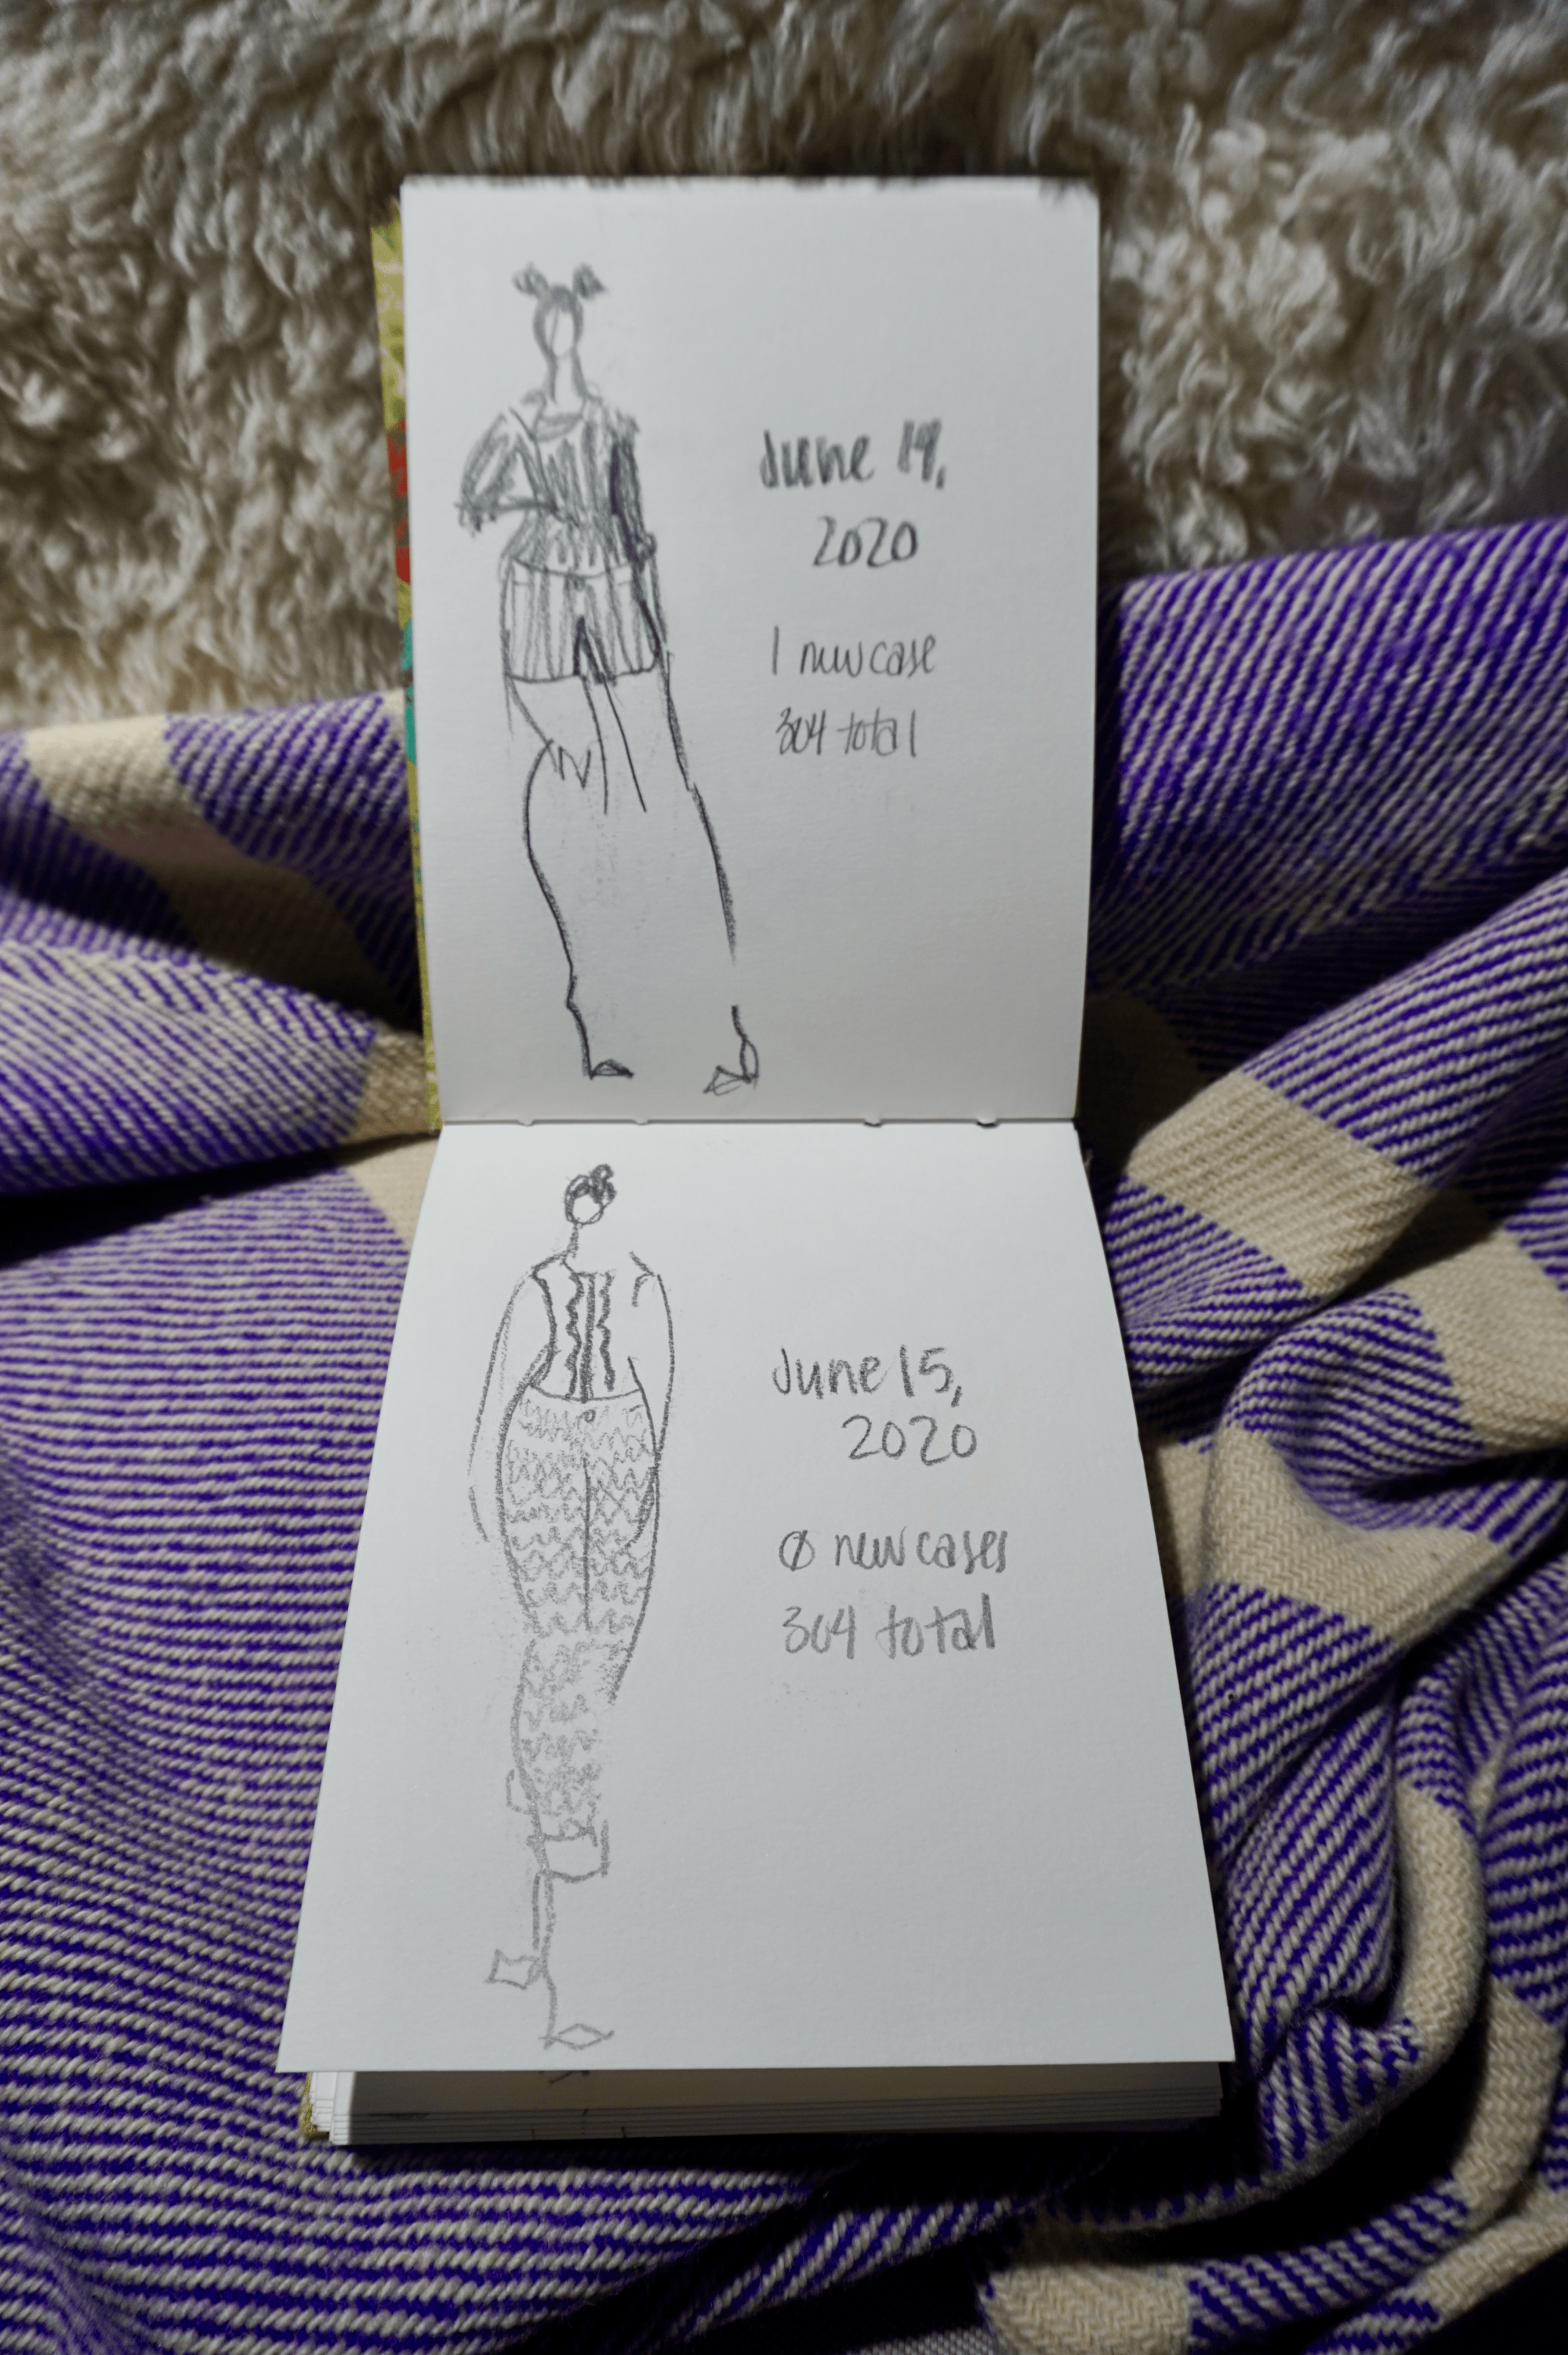 June 14,
2020
1 new case
304 total
June 15,
2020
0 new cases
304 total